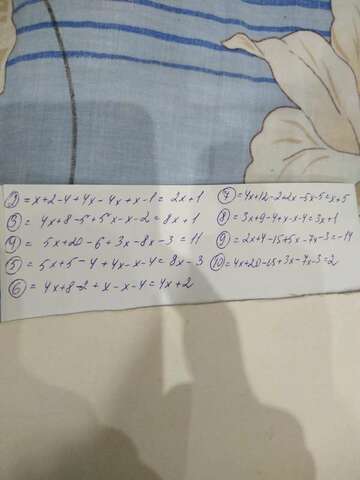 2) = x+2-4+4x-4x+x-1 = 2x+1
3) = 4x+8-5+5x-x-2 = 8x+1
4) = 5x+20-6+3x-8x-3 = 11
5) = 5x+5-4+4x-x-4 = 8x-3
6) = 4x+8-2+x-x-4 = 4x+2
7) = 4x+12-2+2x-5x-5 = x+5
8) = 3x+9-4+x-x-4 = 3x+1
9) = 2x+4-15+5x-7x-3 = -14
10) = 4x+20-15+3x-7x-3 = 2